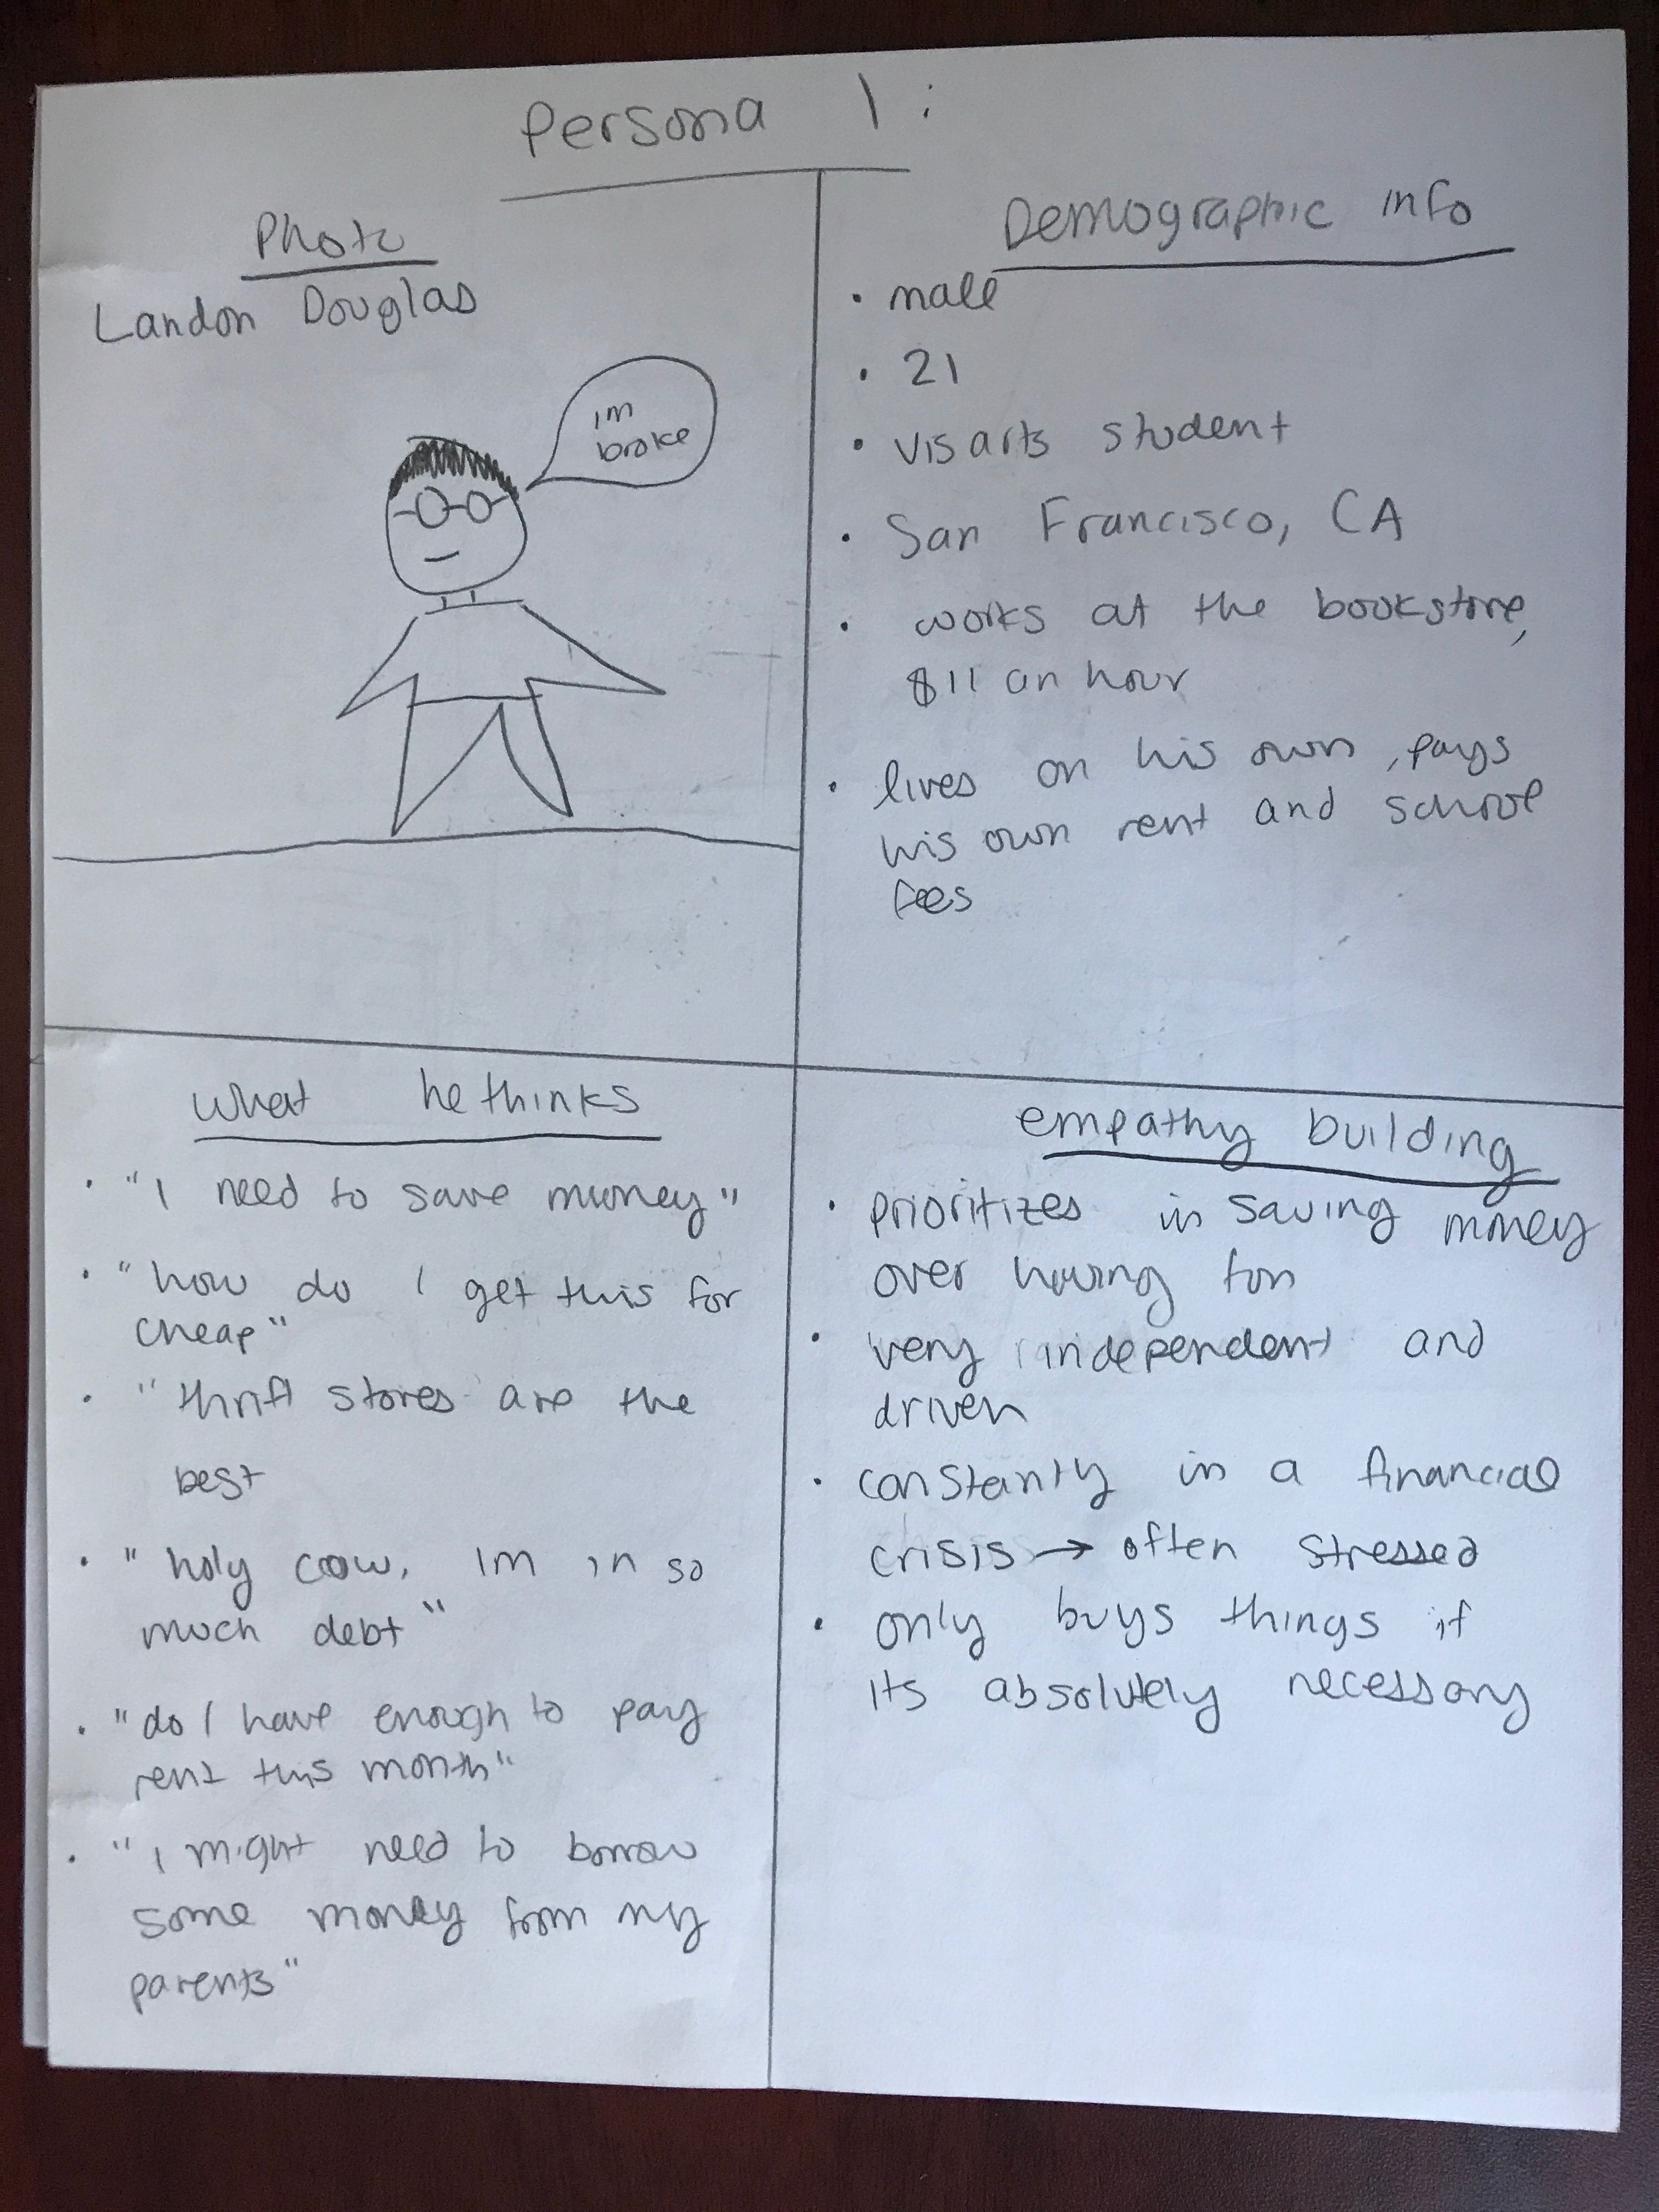 Persona 1:
Photo
Landon Douglas
im
broke
Demographic info
• male
• 21
• vis arts student
• San Francisco, CA
• works at the bookstore,
$11 an hour
• lives on his own, pays
his own rent and school
fees
what he thinks
• "I need to save money"
• "how do I get this for
cheap"
• "thrift stores are the
best
• "holy crow, Im in so
much debt"
• "do I have enough to pay
rent this month"
• "I might need to borrow
some money from my
parents"
empathy building
• prioritizes in saving money
over having fun
• very independent and
driven
• constantly in a financial
crisis → often stressed
• only buys things if
its absolutely necessary